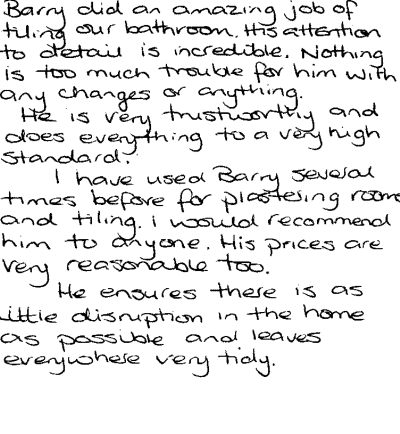 Barry did an amazing job of
tiling our bathroom. His attention
to detail is incredible. Nothing
is too much trouble for him with
any changes or anything.
He is very trustworthy and
does everything to a very high
standard.
I have used Barry several
times before for plastering rooms
and tiling. i would recommend
him to anyone. His prices are
very reasonable too.
He ensures there is as
little disruption in the home
as possible and leaves
everywhere very tidy.